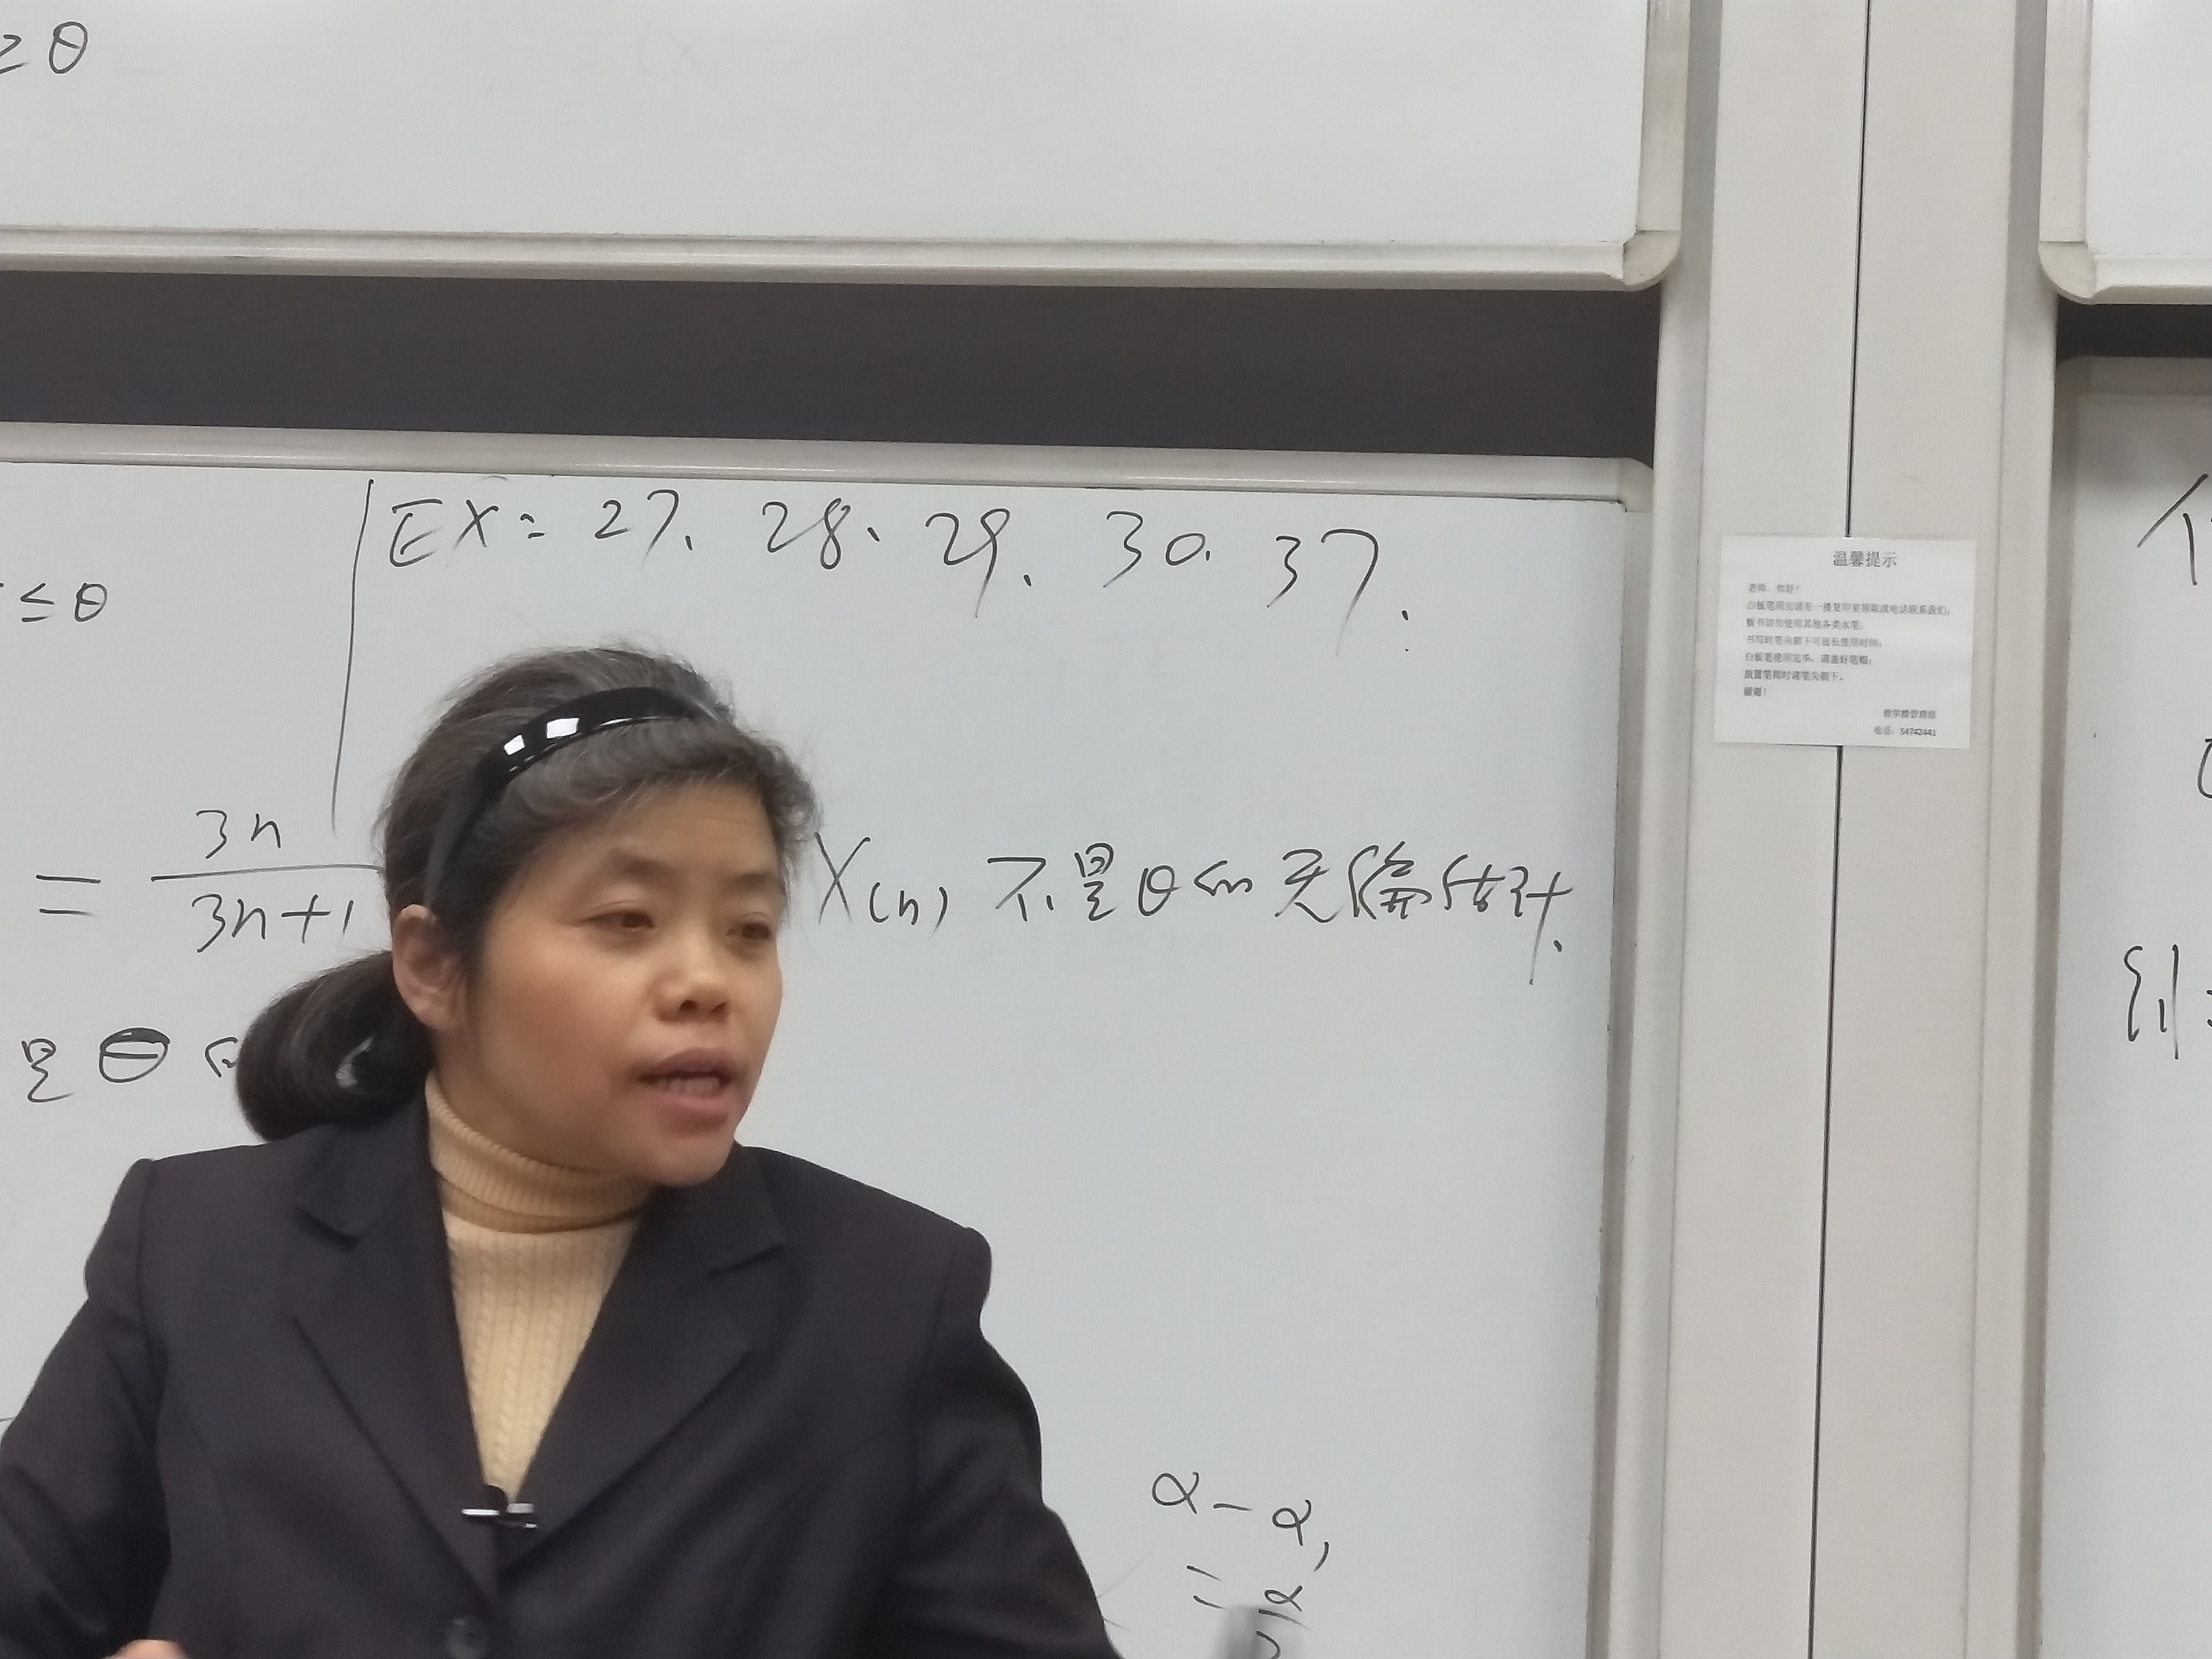 ≥θ
EX: 27. 28. 29. 30. 37.
≤θ
= 3n
3n+1
X(n) 不是θ的无偏估计.
是θ的
α-α,
= α
个
别
温馨提示
老师，你好！
白板笔用完请至一楼复印室领取或电话联系我们；
板书切勿使用其他各类水笔；
书写时笔尖朝下可延长使用时间；
白板笔使用完毕，请盖好笔帽；
放置笔筒时请笔尖朝下。
谢谢！
教学楼管理组
电话：54742441